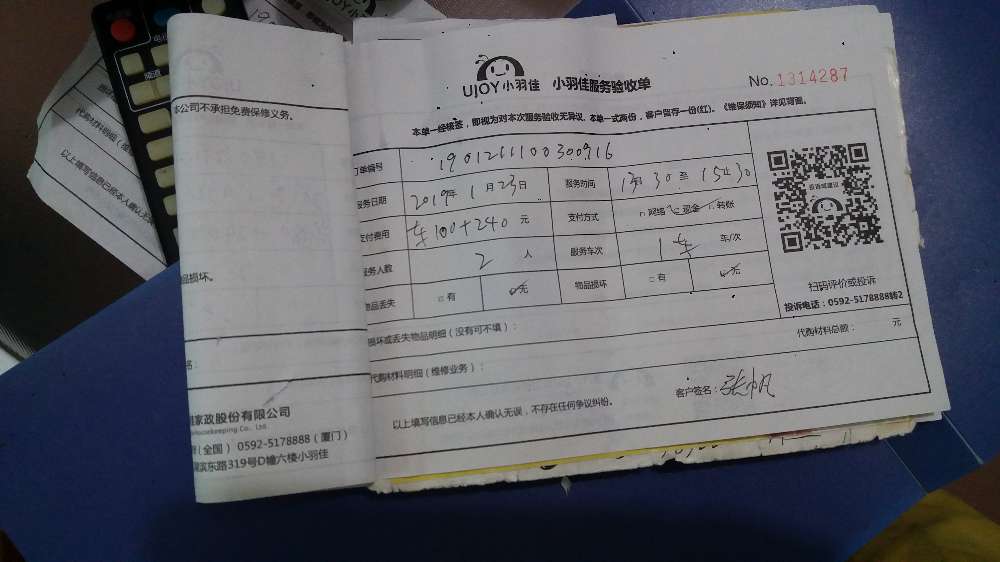 UJOY小羽佳 小羽佳服务验收单
No. 1314287
本单一经核签，即视为对本次服务验收无异议，本单一式两份，客户留存一份(红)。《维保须知》详见背面。
订单编号 190126111003009
服务日期 2019年1月23日 服务时间 30至15 30
支付费用 车100+240元 支付方式 □网络 现金 转账
服务人数 2人 服务车次 1车 车/次
物品丢失 □有 ☑无 物品损坏 □有 ☑无
损坏或丢失物品明细（没有可不填）：
代购材料明细（维修业务）： 代购材料总额： 元
以上填写信息已经本人确认无误，不存在任何争议纠纷。 客户签名：张帆
扫码评价或投诉
投诉电话：0592-5178888转2
本公司不承担免费保修义务。
品损坏。
家政股份有限公司
Housekeeping Co., Ltd.
(全国) 0592-5178888（厦门）
滨东路319号D幢六楼小羽佳
代购材料明细
以上填写信息已经本人确认无
频道